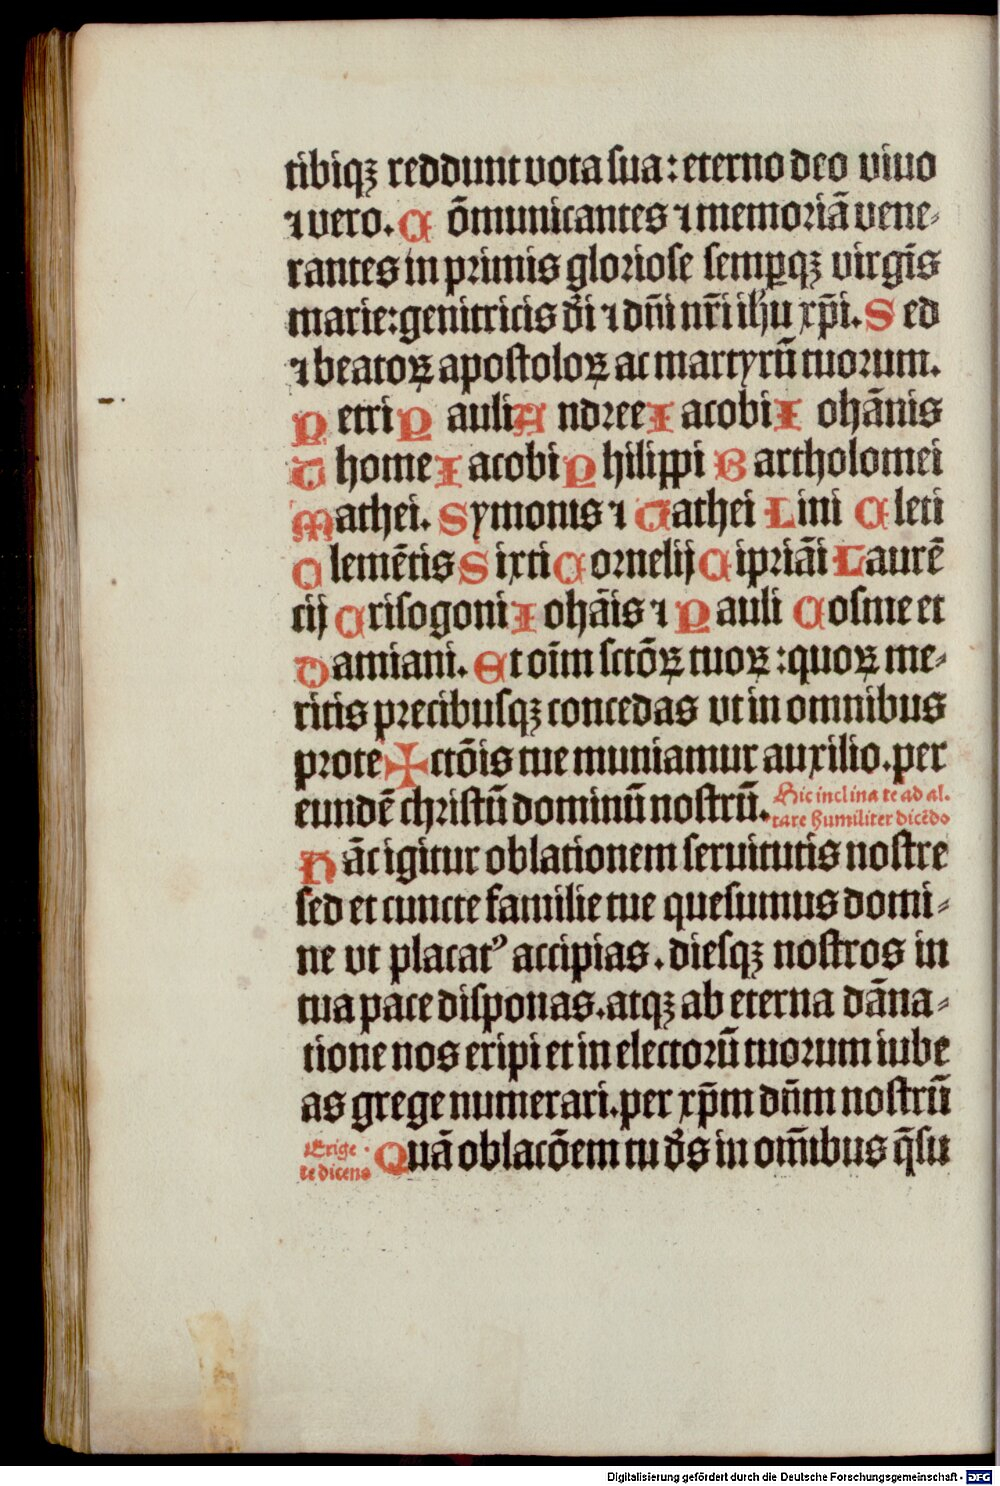 tibiqꝫ reddunt vota sua: eterno deo viuo
⁊ vero. Cōmunicantes ⁊ memoriā vene⸗
rantes in primis gloriose semꝑqꝫ virgīs
marie: genitricis dī ⁊ dn̄i nr̄i ihu xp̄i. Sed
⁊ beatoꝝ apostoloꝝ ac martyrū tuorum.
Petri Pauli Andree Iacobi Iohānis
Thome Iacobi Philippi Bartholomei
Mathei. Symonis ⁊ Tathei Lini Cleti
Clemētis Sixti Cornelij Cipriāi Laurē
cij Crisogoni Iohāis ⁊ Pauli Cosme et
Damiani. Et oīm sctōꝝ tuoꝝ: quoꝝ me⸗
ritis precibusqꝫ concedas vt in omnibus
prote✠ctōis tue muniamur auxilio. per
eundē christū dominū nostrū. Hic inclina te ad al.
tare humiliter dicēdo
Hāc igitur oblationem seruitutis nostre
sed et cuncte familie tue quesumus domi⸗
ne vt placatꝰ accipias. diesqꝫ nostros in
tua pace disponas. atqꝫ ab eterna dāna⸗
tione nos eripi et in electorū tuorum iube
as grege numerari. per xp̄m dn̄m nostrū
Erige
te dicens
Quā oblacōem tu ds̄ in om̄ibus q̄su
Digitalisierung gefördert durch die Deutsche Forschungsgemeinschaft - DFG